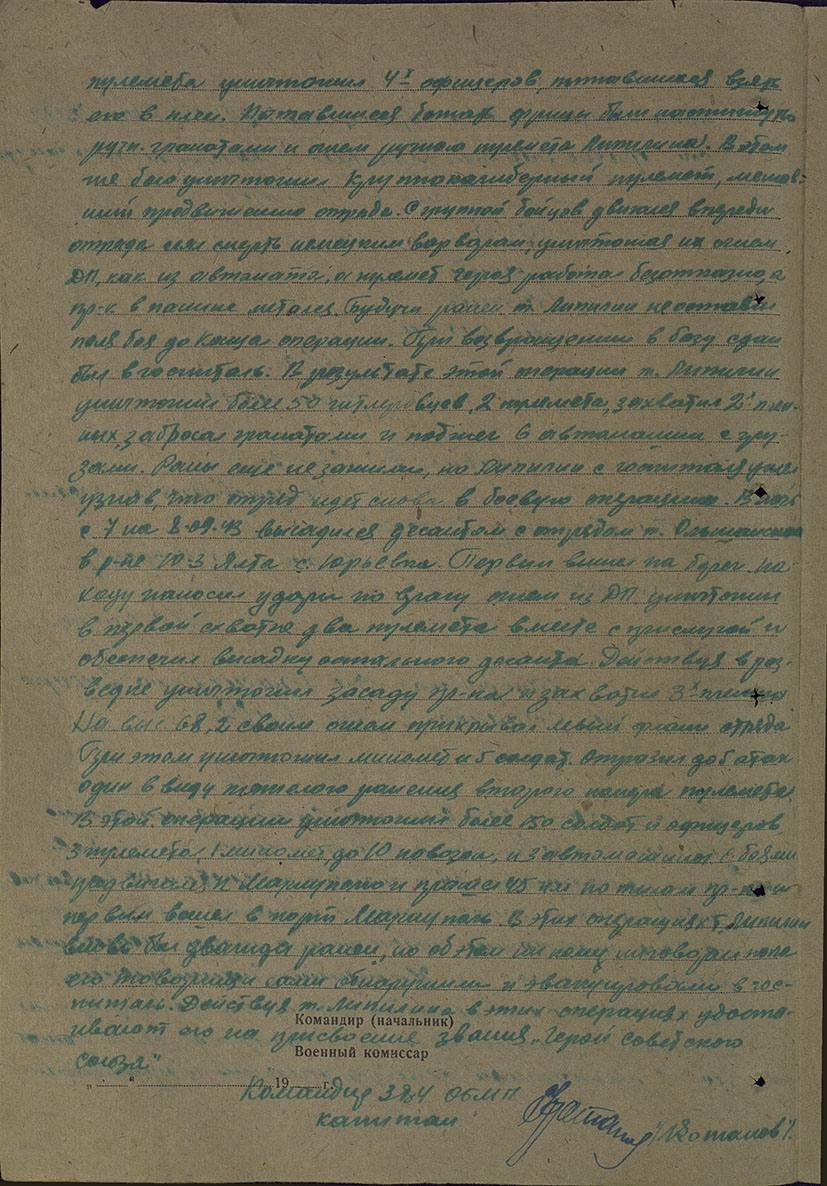 пулемета уничтожил 4х офицеров, пытавшихся взять
его в плен. Пытавшиеся бежать фрицы были настигнуты
ручн. гранатами и огнем ручного пулемета Липилина. В этом
же бою уничтожил крупнокалиберный пулемет, мешав-
ший продвижению отряда. С группой бойцов двигался впереди
отряда сея смерть немецким варварам, уничтожая их огнем
ДП, как из автомата, а пулемет героя работал безотказно, а
пр-к в панике метался. Будучи ранен т. Липилин не оставил
поля боя до конца операции. При возвращении в базу сдан
был в госпиталь. В результате этой операции т. Липилин
уничтожил более 50 гитлеровцев, 2 пулемета, захватил 2х плен-
ных, забросал гранатами и поджег 6 автомашин с гру-
зами. Раны еще не зажили, но Липилин с госпиталя ушел
узнав, что отряд идет снова в боевую операцию. В ночь
с 7 на 8-09.43 высадился десантом с отрядом т. Ольшанского
в р-не Ю-З Ялта с. Юрьевка. Первым вышел на берег. На
ходу наносил удары по врагу огнем из ДП уничтожил
в первой схватке два пулемета вместе с прислугой и
обеспечил высадку остального десанта. Действуя в раз-
ведке уничтожил засаду пр-ка и захватил 3х пленных
На выс 68,2 своим огнем прикрывал левый фланг отряда
При этом уничтожил миномет и 5 солдат. Отразил до 6 атак
один в виду тяжелого ранения второго номера пулемета.
В этой операции уничтожил более 150 солдат и офицеров
3 пулемета, 1 миномет до 10 повозок, и 3 автомашины с боями
продвигался к Мариуполю и прошел 45 км по тылам пр-ка и
первым вошел в порт Мариуполь. В этих операциях т. Липилин
вновь был дважды ранен, но об этом ни кому не говорил пока
его товарищи сами обнаружили и эвакуировали в гос-
питаль. Действия т. Липилина в этих операциях удоста-
ивают его на присвоение звания „Герой советского
союза"
Командир (начальник)
Военный комиссар
„ " 19 г.
Командир 384 ОБМП
капитан /Котанов/.